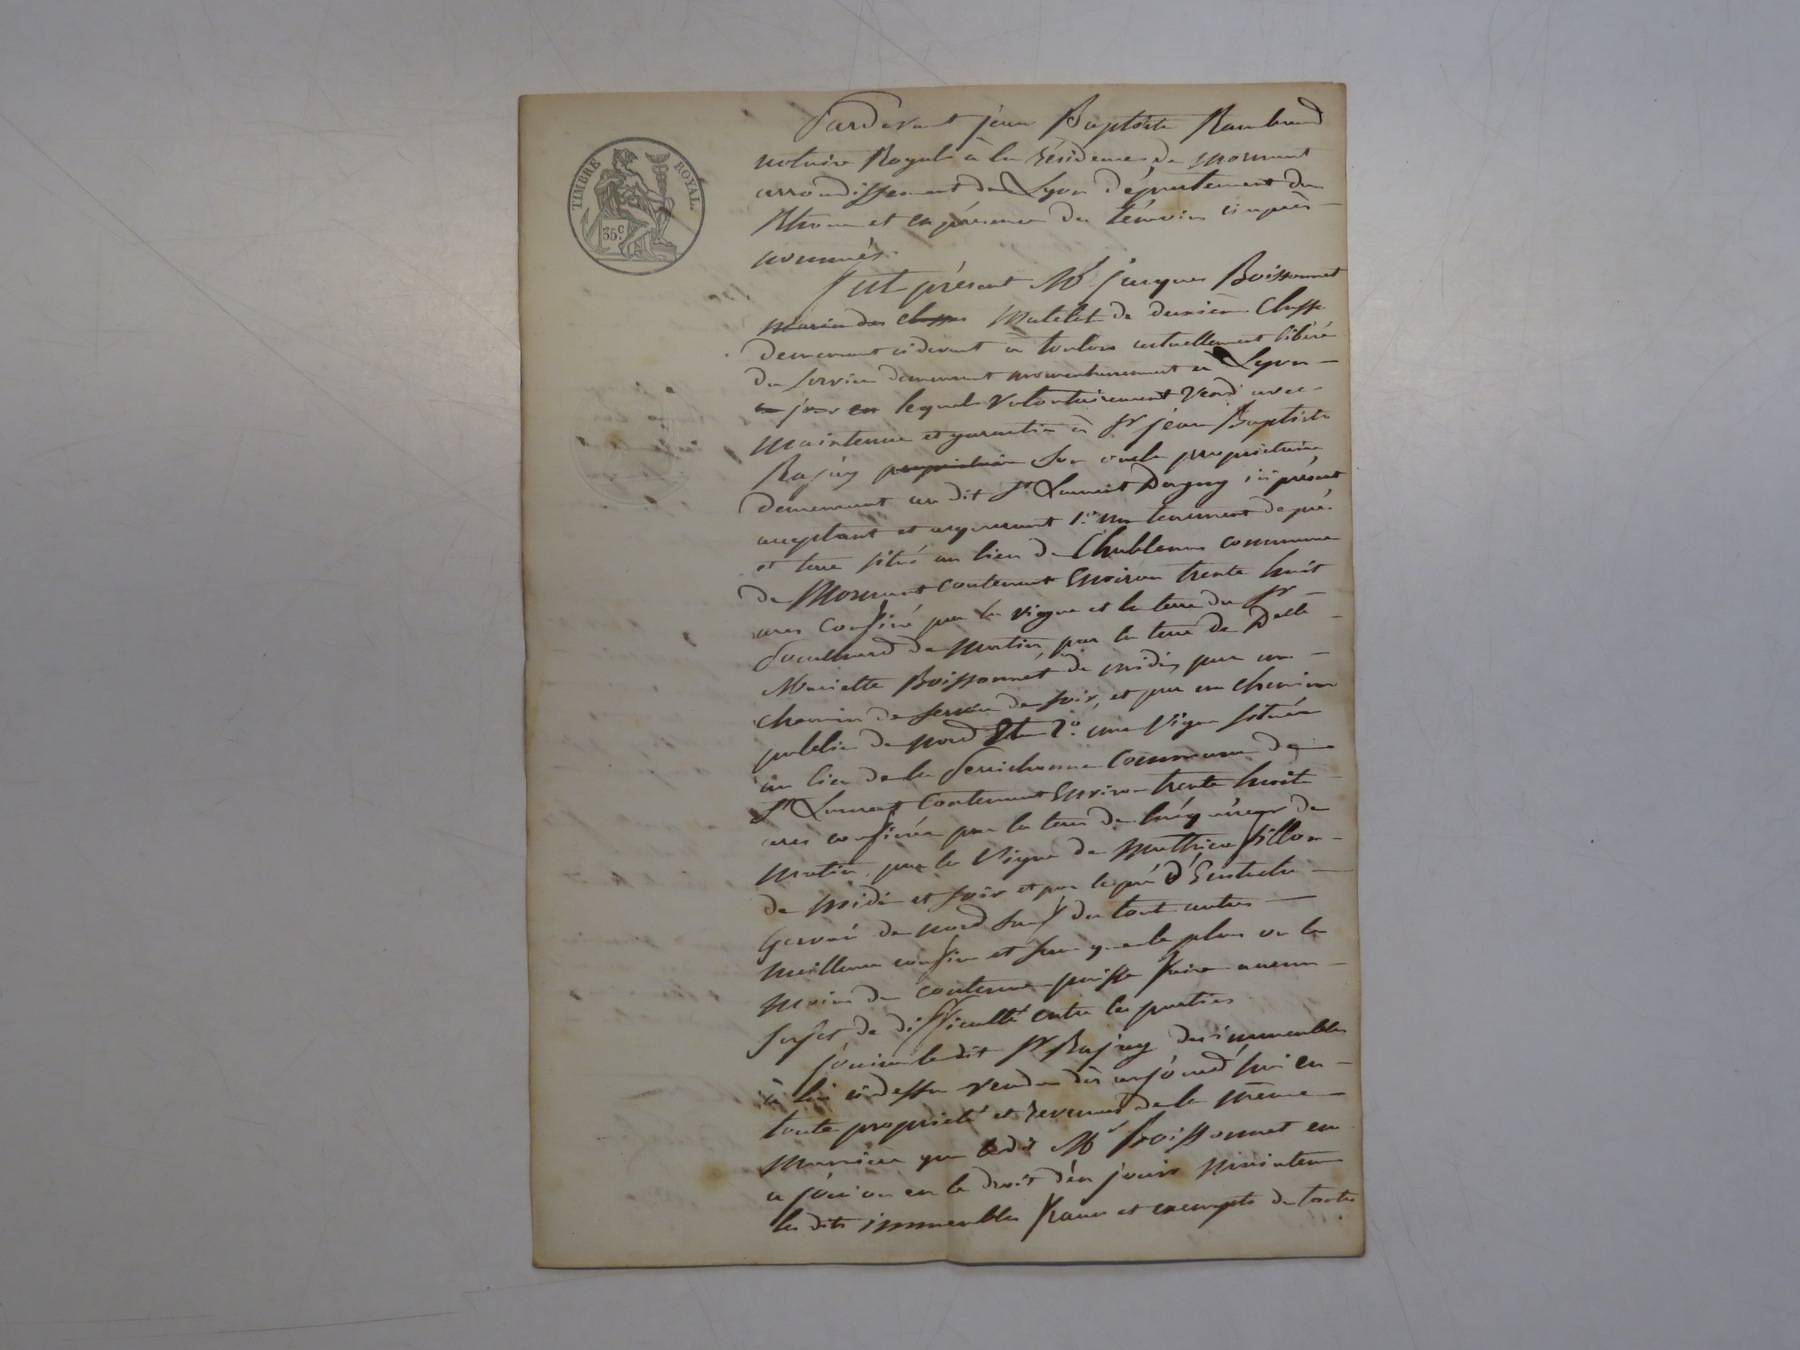 TIMBRE ROYAL.
35c.
Pardevant jean Baptiste Rambaud
notaire Royal à la résidence de mornant
arrondissement de Lyon département du
Rhone et en présence des témoins ciaprès
nommés.
Fut présent Mr jacques Boissonnet
marin des classes Matelot de dernière Classe
demeurant cidevant à toulon actuellement libéré
du service demeurant momentanement à Lyon
lequel volontairement vend avec
maintenue et garantie à Sr jean Baptiste
Rajey propriétaire son oncle propriétaire
demeurant au dit St Laurent Dagny ici présent
acceptant et acquerant 1o un tenement de pré
et terre situé au lieu de Chablenas commune
de Mornant contenant Environ trente huit
ares Confiné par la vigne et la terre du Sr
de matin, par la terre de Delle
Mariette Boissonnet de midi, par un
chemin de service de soir, et par un chemin
public de nord Et 2o une Vigne située
au lieu de la commune de
St Laurent Contenant Environ trente huit
ares confinée par la terre de l'acquéreur de
matin, par la Vigne de Mathieu Villon
de midi et soir et par le pré d'Eustache
Gervais de nord sauf de tout autres
meilleurs confins et sans que le plus ou le
moins de contenue puisse faire aucun
sujet de difficulté entre les parties
jouira ledit Sr Rajey des immeubles
à lui cidessus vendus dès aujourd'hui en
toute propriété et revenus de la même
manière que ledit Mr Boissonnet en
a joui ou eu le droit d'en jouir maintenu
les dits immeubles francs et exempts de toutes